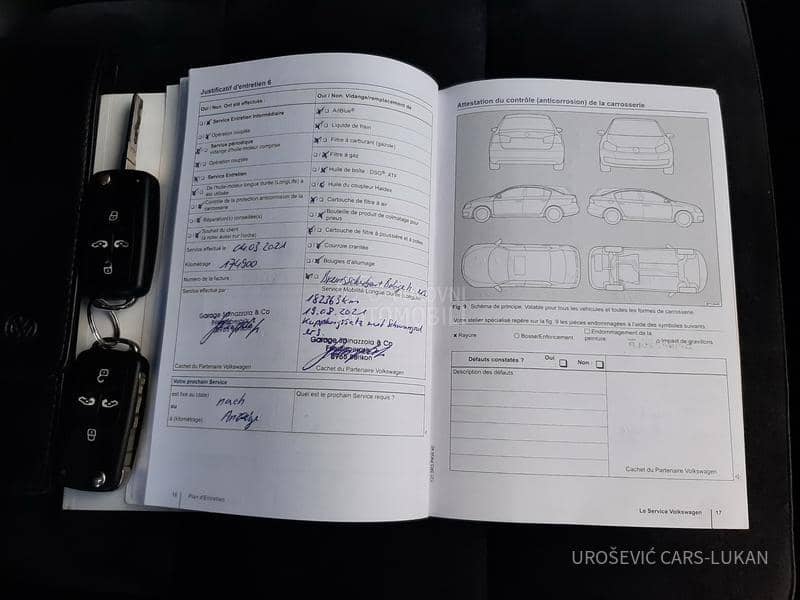 Justificatif d'entretien 6
Oui / Non. Ont été effectués :
Service Entretien Intermédiaire
Opération couplée
Service périodique
vidange d'huile-moteur comprise
Opération couplée
Service Entretien
De l'huile-moteur longue durée (LongLife) a
été utilisée
Contrôle de la protection anticorrosion de la
carrosserie
Réparation(s) conseillée(s)
Souhait du client
(à noter aussi sur l'ordre)
Service effectué le 04.03.2021
Kilométrage 174900
Numéro de la facture
Service effectué par
Garage Spinazzola & Co
Cachet du Partenaire Volkswagen
Oui / Non. Vidange/remplacement de
AdBlue®
Liquide de frein
Filtre à carburant (gazole)
Filtre à gaz
Huile de boîte : DSG®, ATX
Huile du coupleur Haldex
Cartouche de filtre à air
Bouteille de produit de colmatage pour
pneus
Cartouche de filtre à poussière et à pollen
Courroie crantée
Bougies d'allumage
Service Mobilité Longue Durée (LongLife)
182363km
19.08.2021
Kupplungssatz mit Schwungrad
ers.
Garage Spinazzola & Co
Cachet du Partenaire Volkswagen
Votre prochain Service
est fixé au (date) nach
ou
à (kilométrage) Anzeige
Quel est le prochain Service requis ?
16 Plan d'Entretien
Attestation du contrôle (anticorrosion) de la carrosserie
Fig. 9 Schéma de principe. Valable pour tous les véhicules et toutes les formes de carrosserie.
Votre atelier spécialisé repère sur la fig. 9 les pièces endommagées à l'aide des symboles suivants.
x Rayure
Bosse/Enfoncement
Endommagement de la
peinture
Impact de gravillons
Défauts constatés ? Oui Non :
Description des défauts
Cachet du Partenaire Volkswagen
Le Service Volkswagen 17
UROŠEVIĆ CARS-LUKAN